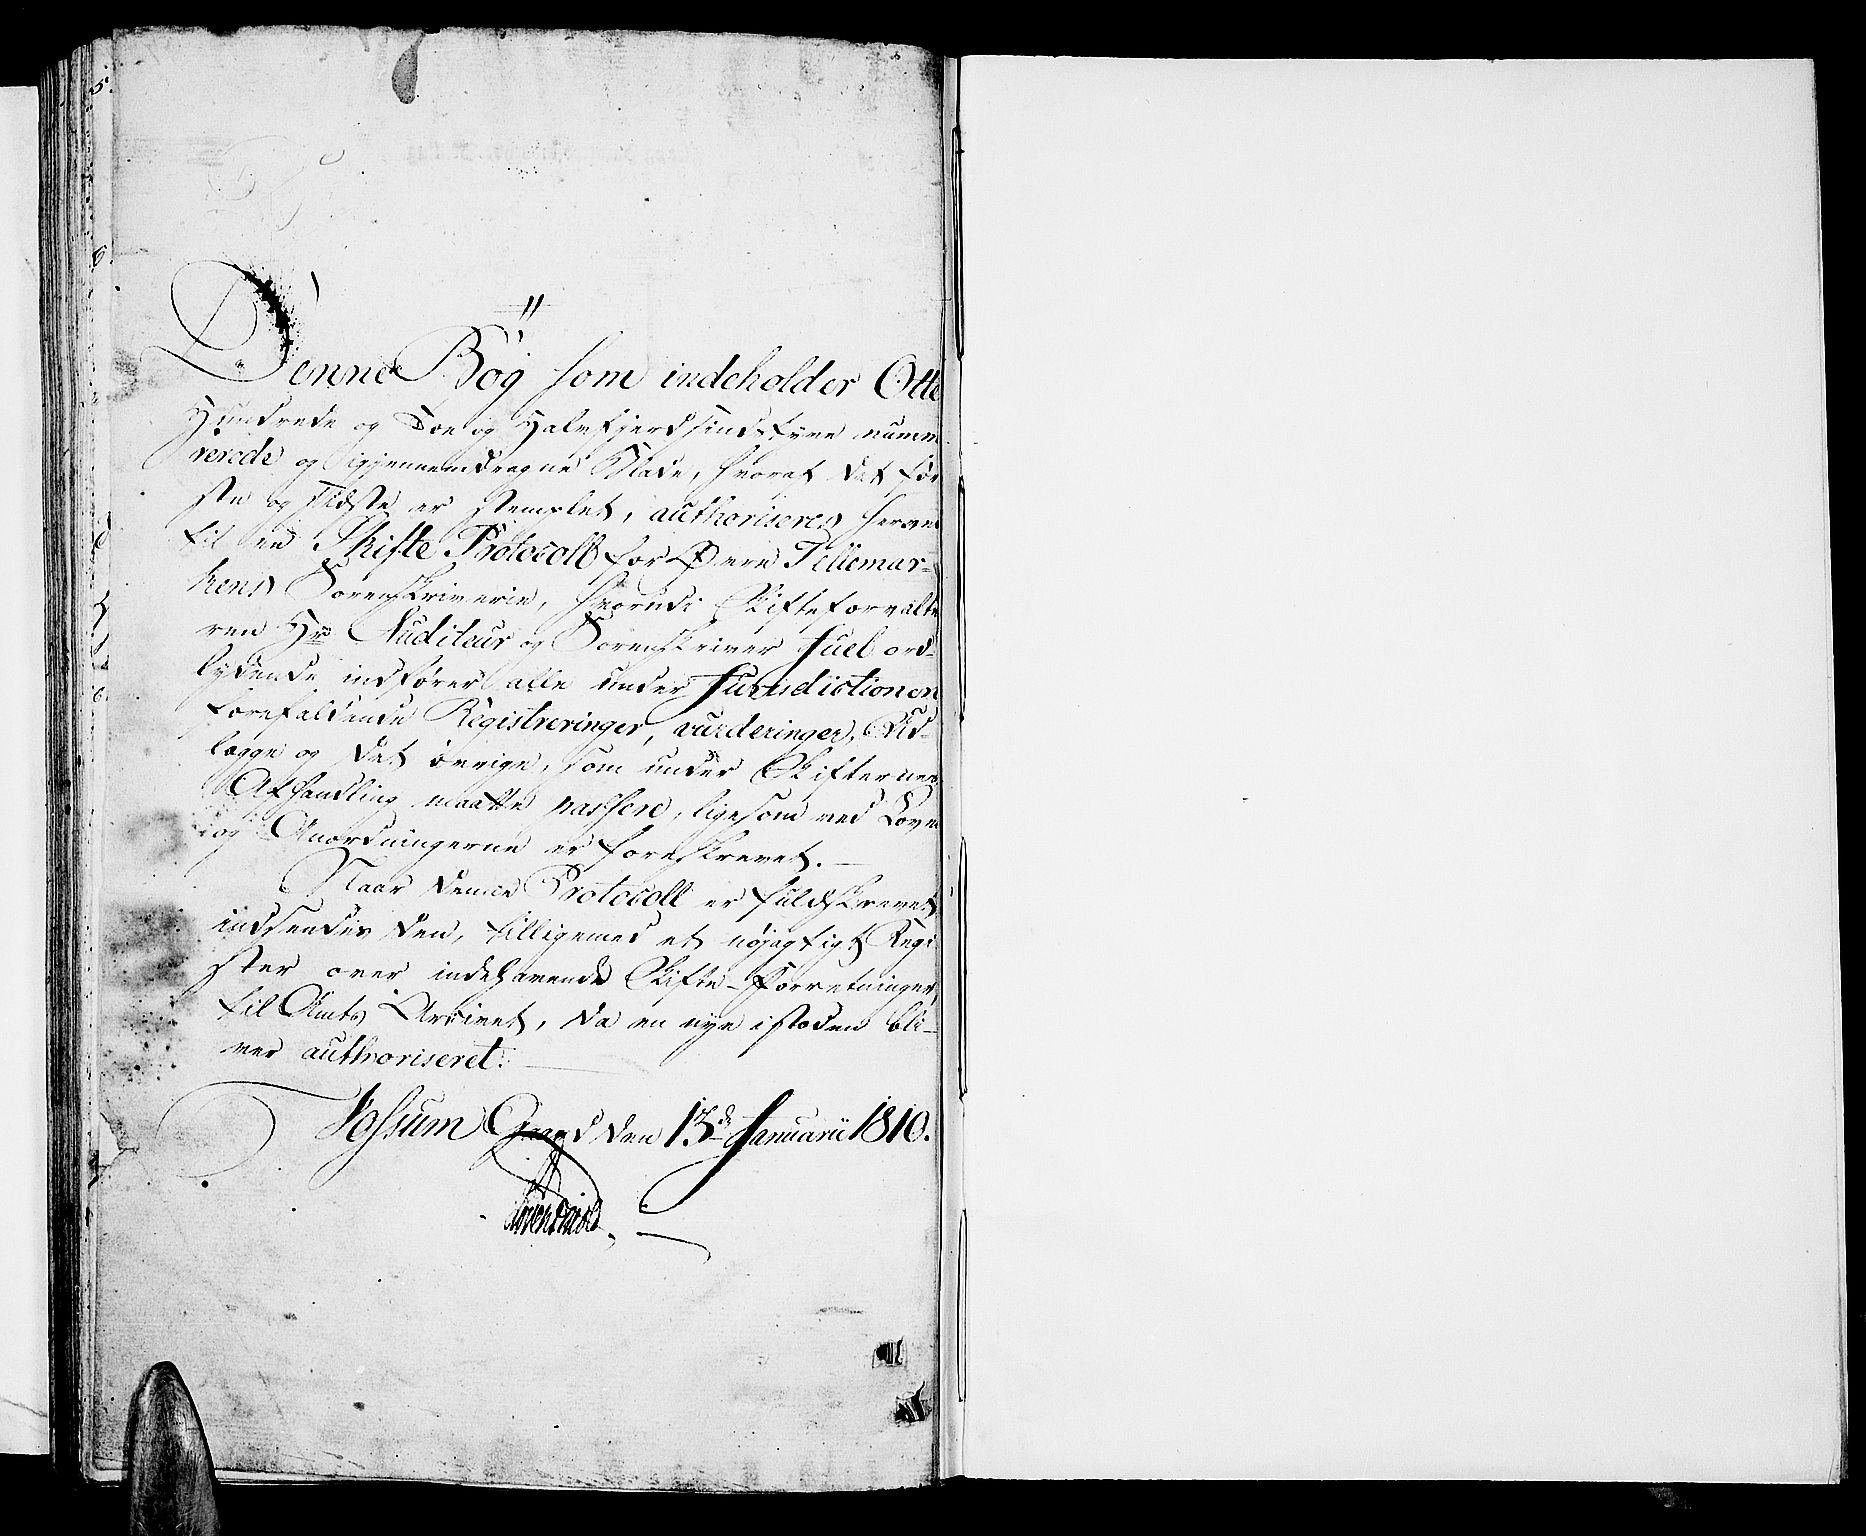 Denne Bog som indeholder Otte
Hundrede og Toe og Halvfjerdsindstyve numme
rerede og igjennemdragne Blade, hvoraf det før
ste og sidste er stemplet, authoriseres herved
til en Skifte Protocoll for Øvre Tellemar-
kens Sorenskriverie, hvorudi Skifteforvalte
ren Hr Auditeur og Sorenskriver Juel ord-
lydende indfører alle under Jurisdictionen
forefaldende Registreringer, vurderinger, Ud-
lægge og det øvrige, som under Skifternes
Afhandling maatte passere, ligesom ved Loven
og Anordningerne er foreskrevet.
Naar denne Protocoll er fuldskrevet
indsendes den, tilligemed et nøjagtigt Regi
ster over indehavende Skifte-Forretninger,
til Amts Arkivet, da en nye istæden bli-
ver authoriseret.
Fossum Gaard den 13de Januarii 1810.
Løvenskiold